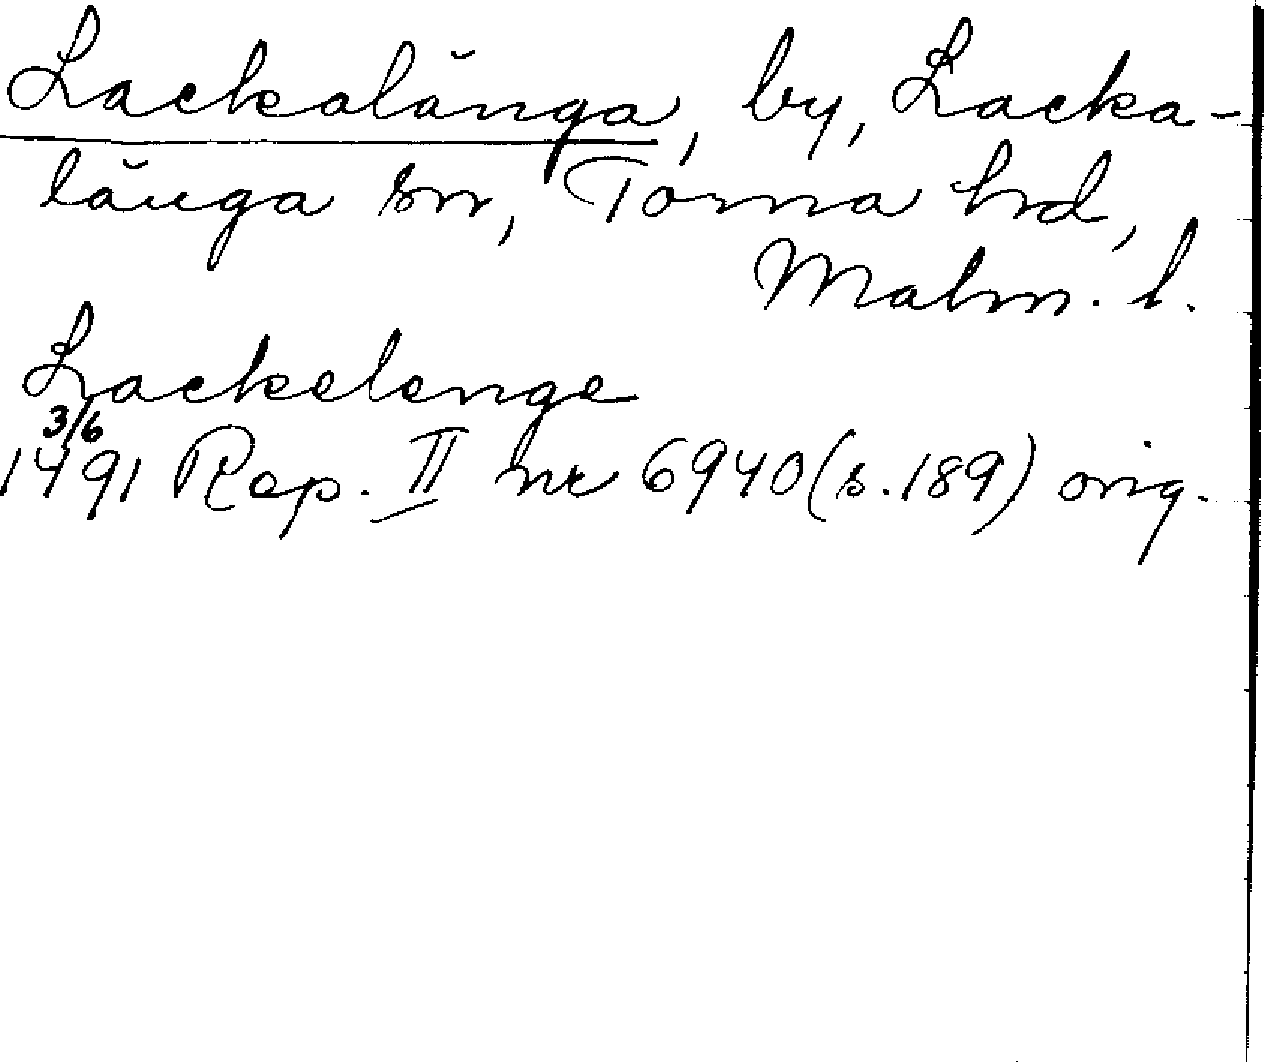 Lackalänga, by, Lacka-
länga sn, Torna hd,
Malm. l.
Lackelenge
3/6
1491 Rep. II nr 6940 (s. 189) orig.